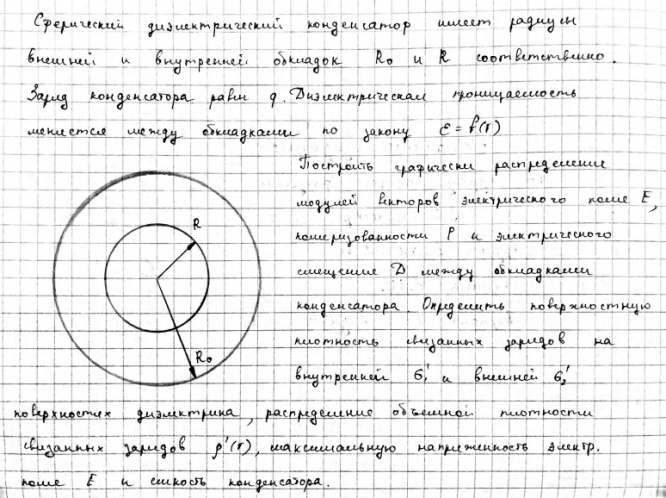 Сферический диэлектрический конденсатор имеет радиусы
внешней и внутренней обкладок R₀ и R соответственно.
Заряд конденсатора равен q. Диэлектрическая проницаемость
меняется между обкладками по закону ε = f(r)
Построить графически распределение
модулей векторов электрического поле E,
R
поляризованности P и электрического
смещение D между обкладками
конденсатора. Определить поверхностную
R₀
плотность связанных зарядов на
внутренней σ₁' и внешней σ₂'
поверхностях диэлектрика, распределение объемной плотности
связанных зарядов ρ'(r), максимальную напряженность электр.
поле E и емкость конденсатора.